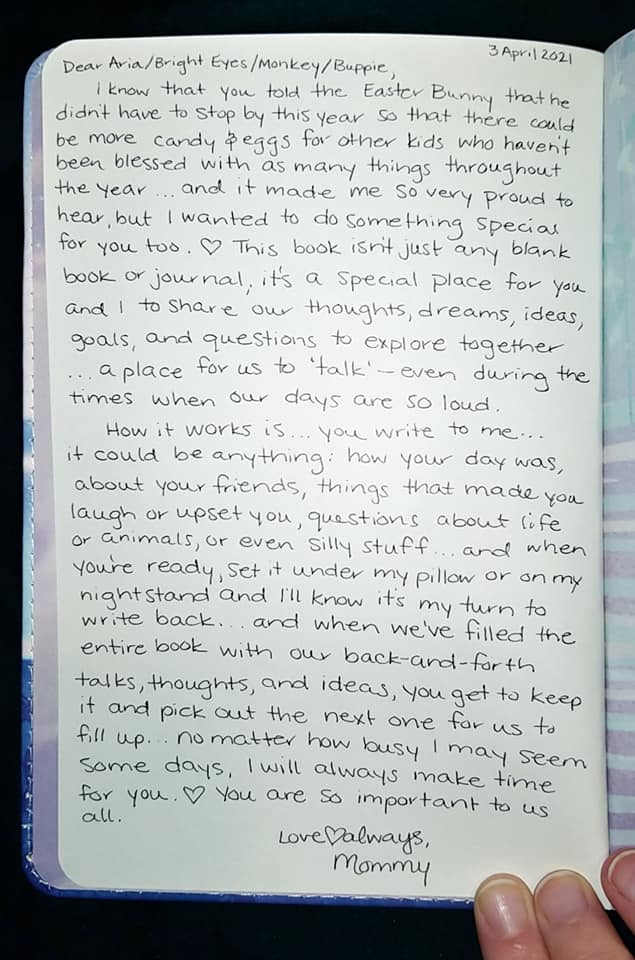 3 April 2021
Dear Aria/Bright Eyes/Monkey/Buppie,
i know that you told the Easter Bunny that he
didn't have to stop by this year so that there could
be more candy & eggs for other kids who haven't
been blessed with as many things throughout
the year... and it made me so very proud to
hear, but I wanted to do something special
for you too. ♡ This book isn't just any blank
book or journal, it's a special place for you
and I to share our thoughts, dreams, ideas,
goals, and questions to explore together
... a place for us to 'talk' - even during the
times when our days are so loud.
How it works is... you write to me...
it could be anything: how your day was,
about your friends, things that made you
laugh or upset you, questions about life
or animals, or even silly stuff... and when
you're ready, set it under my pillow or on my
nightstand and I'll know it's my turn to
write back... and when we've filled the
entire book with our back-and-forth
talks, thoughts, and ideas, you get to keep
it and pick out the next one for us to
fill up... no matter how busy I may seem
some days, I will always make time
for you. ♡ You are so important to us
all.
Love♡always,
Mommy